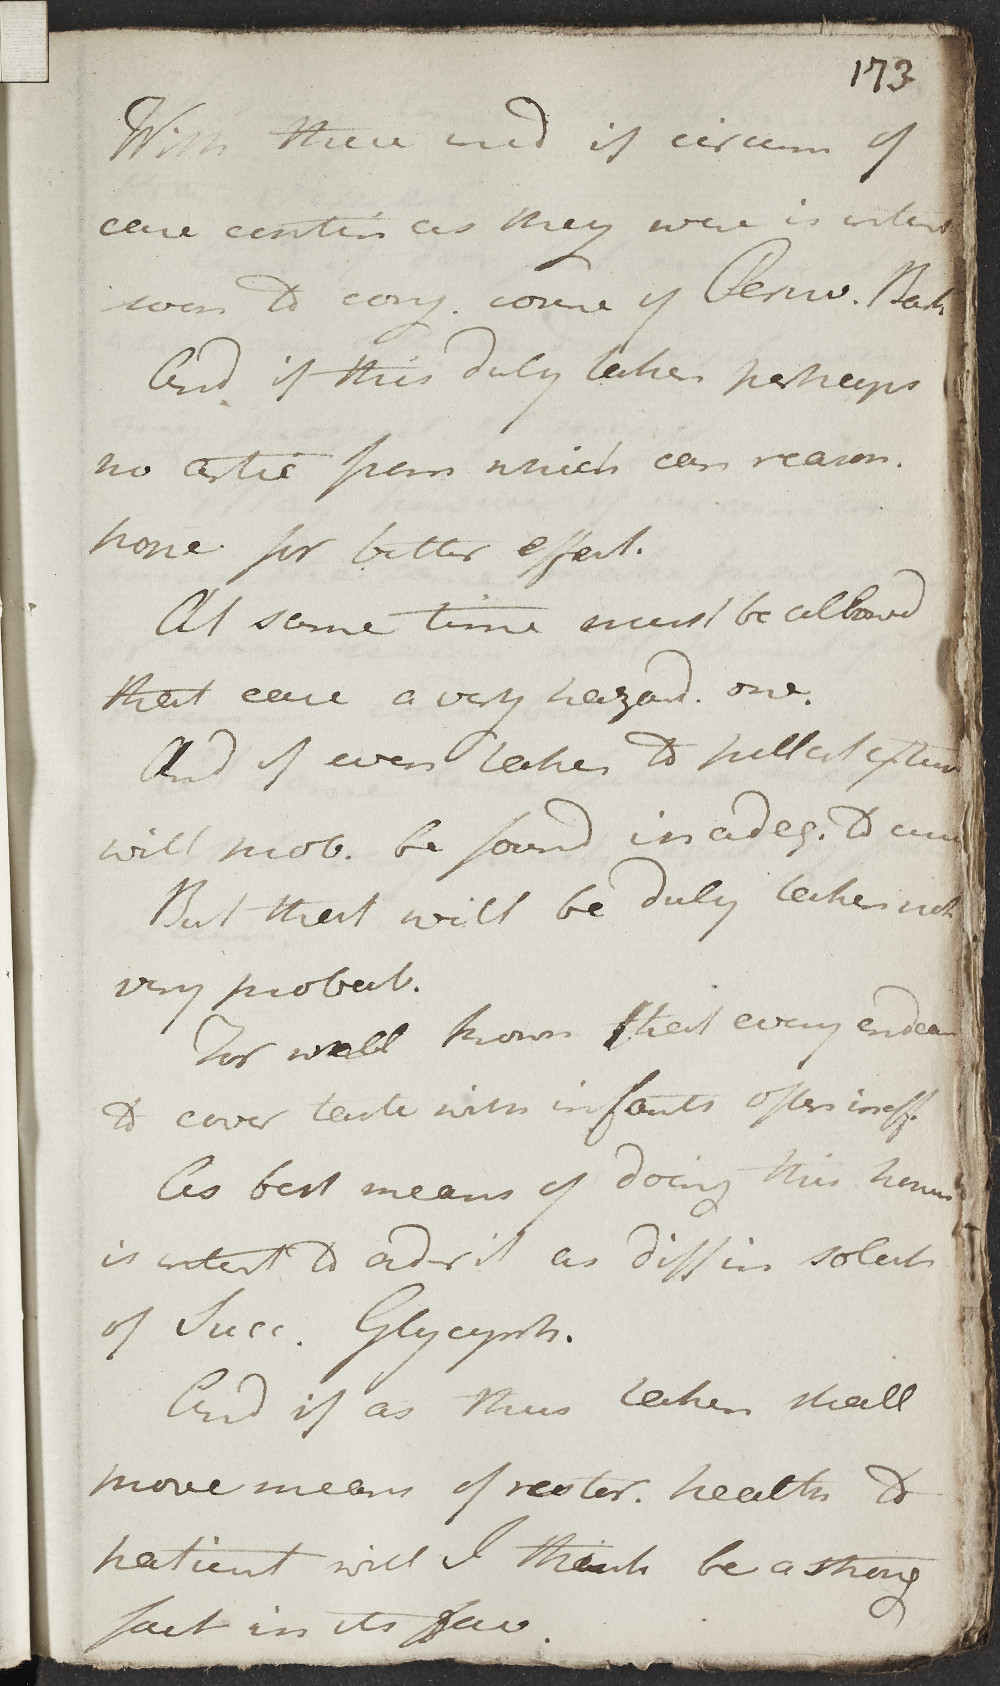 173
With these and if circum of
case contin as they were is intent
soon to conj. course of Peruv. Bark
And if this duly taken perhaps
no artic from which can reason.
hope for better effect.
At same time must be allowed
that case a very hazard. one.
And if even taken to full extent
will prob. be found inadeq. to cure
But that will be duly taken not
very probab.
For well known that every endeav
to cover taste with infants often ineff.
As best means of doing this however
is intent to adv it as diff in solut
of Succ. Glycyrrh.
And if as thus taken shall
prove means of restor. health to
patient will I think be a strong
fact in its fav.